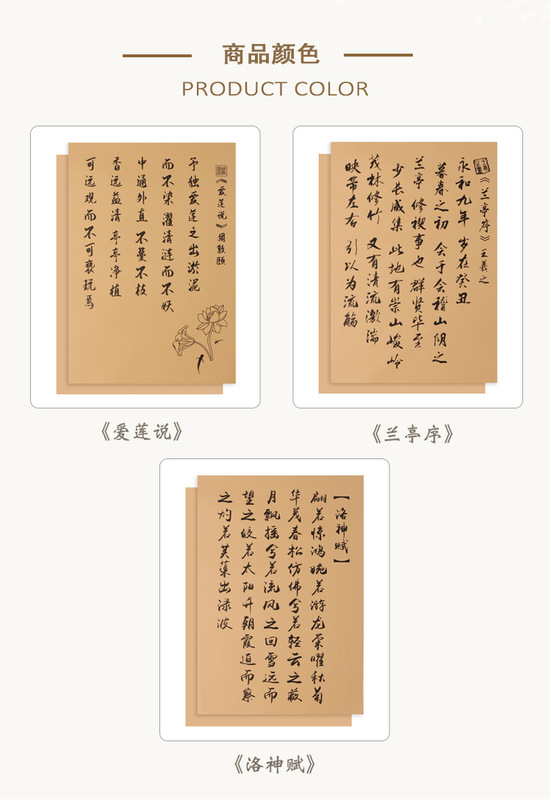 商品颜色
PRODUCT COLOR
《爱莲说》周敦颐
予独爱莲之出淤泥
而不染 濯清涟而不妖
中通外直 不蔓不枝
香远益清 亭亭净植
可远观而不可亵玩焉
《爱莲说》
《兰亭序》王羲之
永和九年 岁在癸丑
暮春之初 会于会稽山阴之
兰亭 修禊事也 群贤毕至
少长咸集 此地有崇山峻岭
茂林修竹 又有清流激湍
映带左右 引以为流觞
《兰亭序》
【洛神赋】
翩若惊鸿婉若游龙荣曜秋菊
华茂春松仿佛兮若轻云之蔽
月飘摇兮若流风之回雪远而
望之皎若太阳升朝霞迫而察
之灼若芙蕖出渌波
《洛神赋》